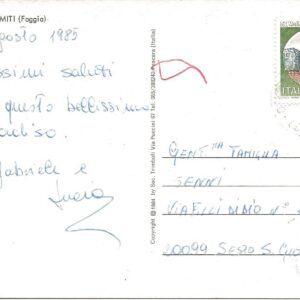 MITI (Foggia)
agosto 1985
ssimi saluti
questo bellissimo
adiso.
Gabriele e
Lucia
Copyright © 1984 by Sac. Trimboli Via Puccini 67 Tel. 085/388240 Pescara (Italia)
ITALIA
GENT.MA FAMIGLIA
JENNI
VIA F.LLI DI DIO N°
20099 SESTO S. GIO